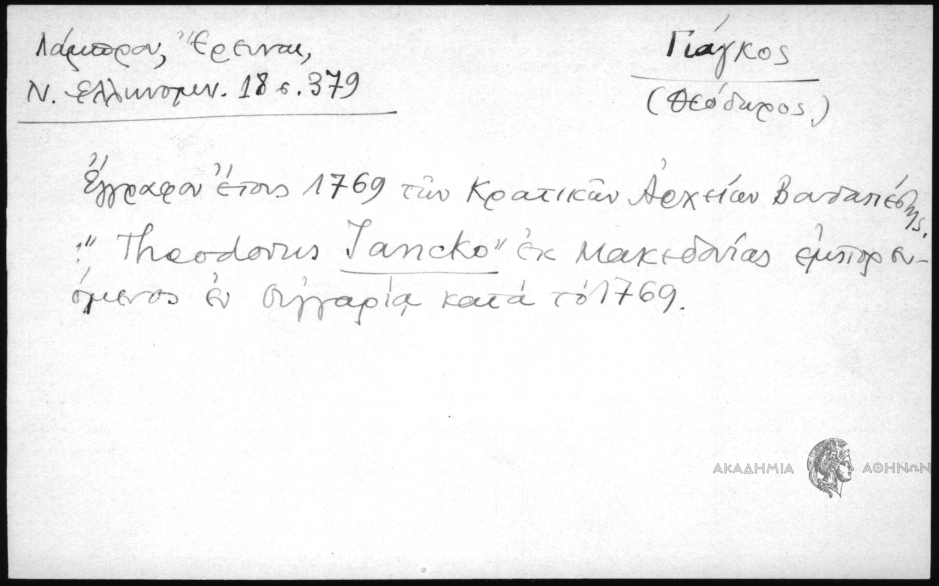 Λάμπρου, Ἔρευναι,
Ν. Ἑλληνομν. 18 σ. 379
Γιάγκος
(Θεόδωρος)
Ἔγγραφον ἔτους 1769 τῶν Κρατικῶν Ἀρχείων Βουδαπέστης.
: "Theodorus Jancko" ἐκ Μακεδονίας ἐμπορευ-
όμενος ἐν Οὑγγαρίᾳ κατά τό 1769.
ΑΚΑΔΗΜΙΑ ΑΘΗΝΩΝ